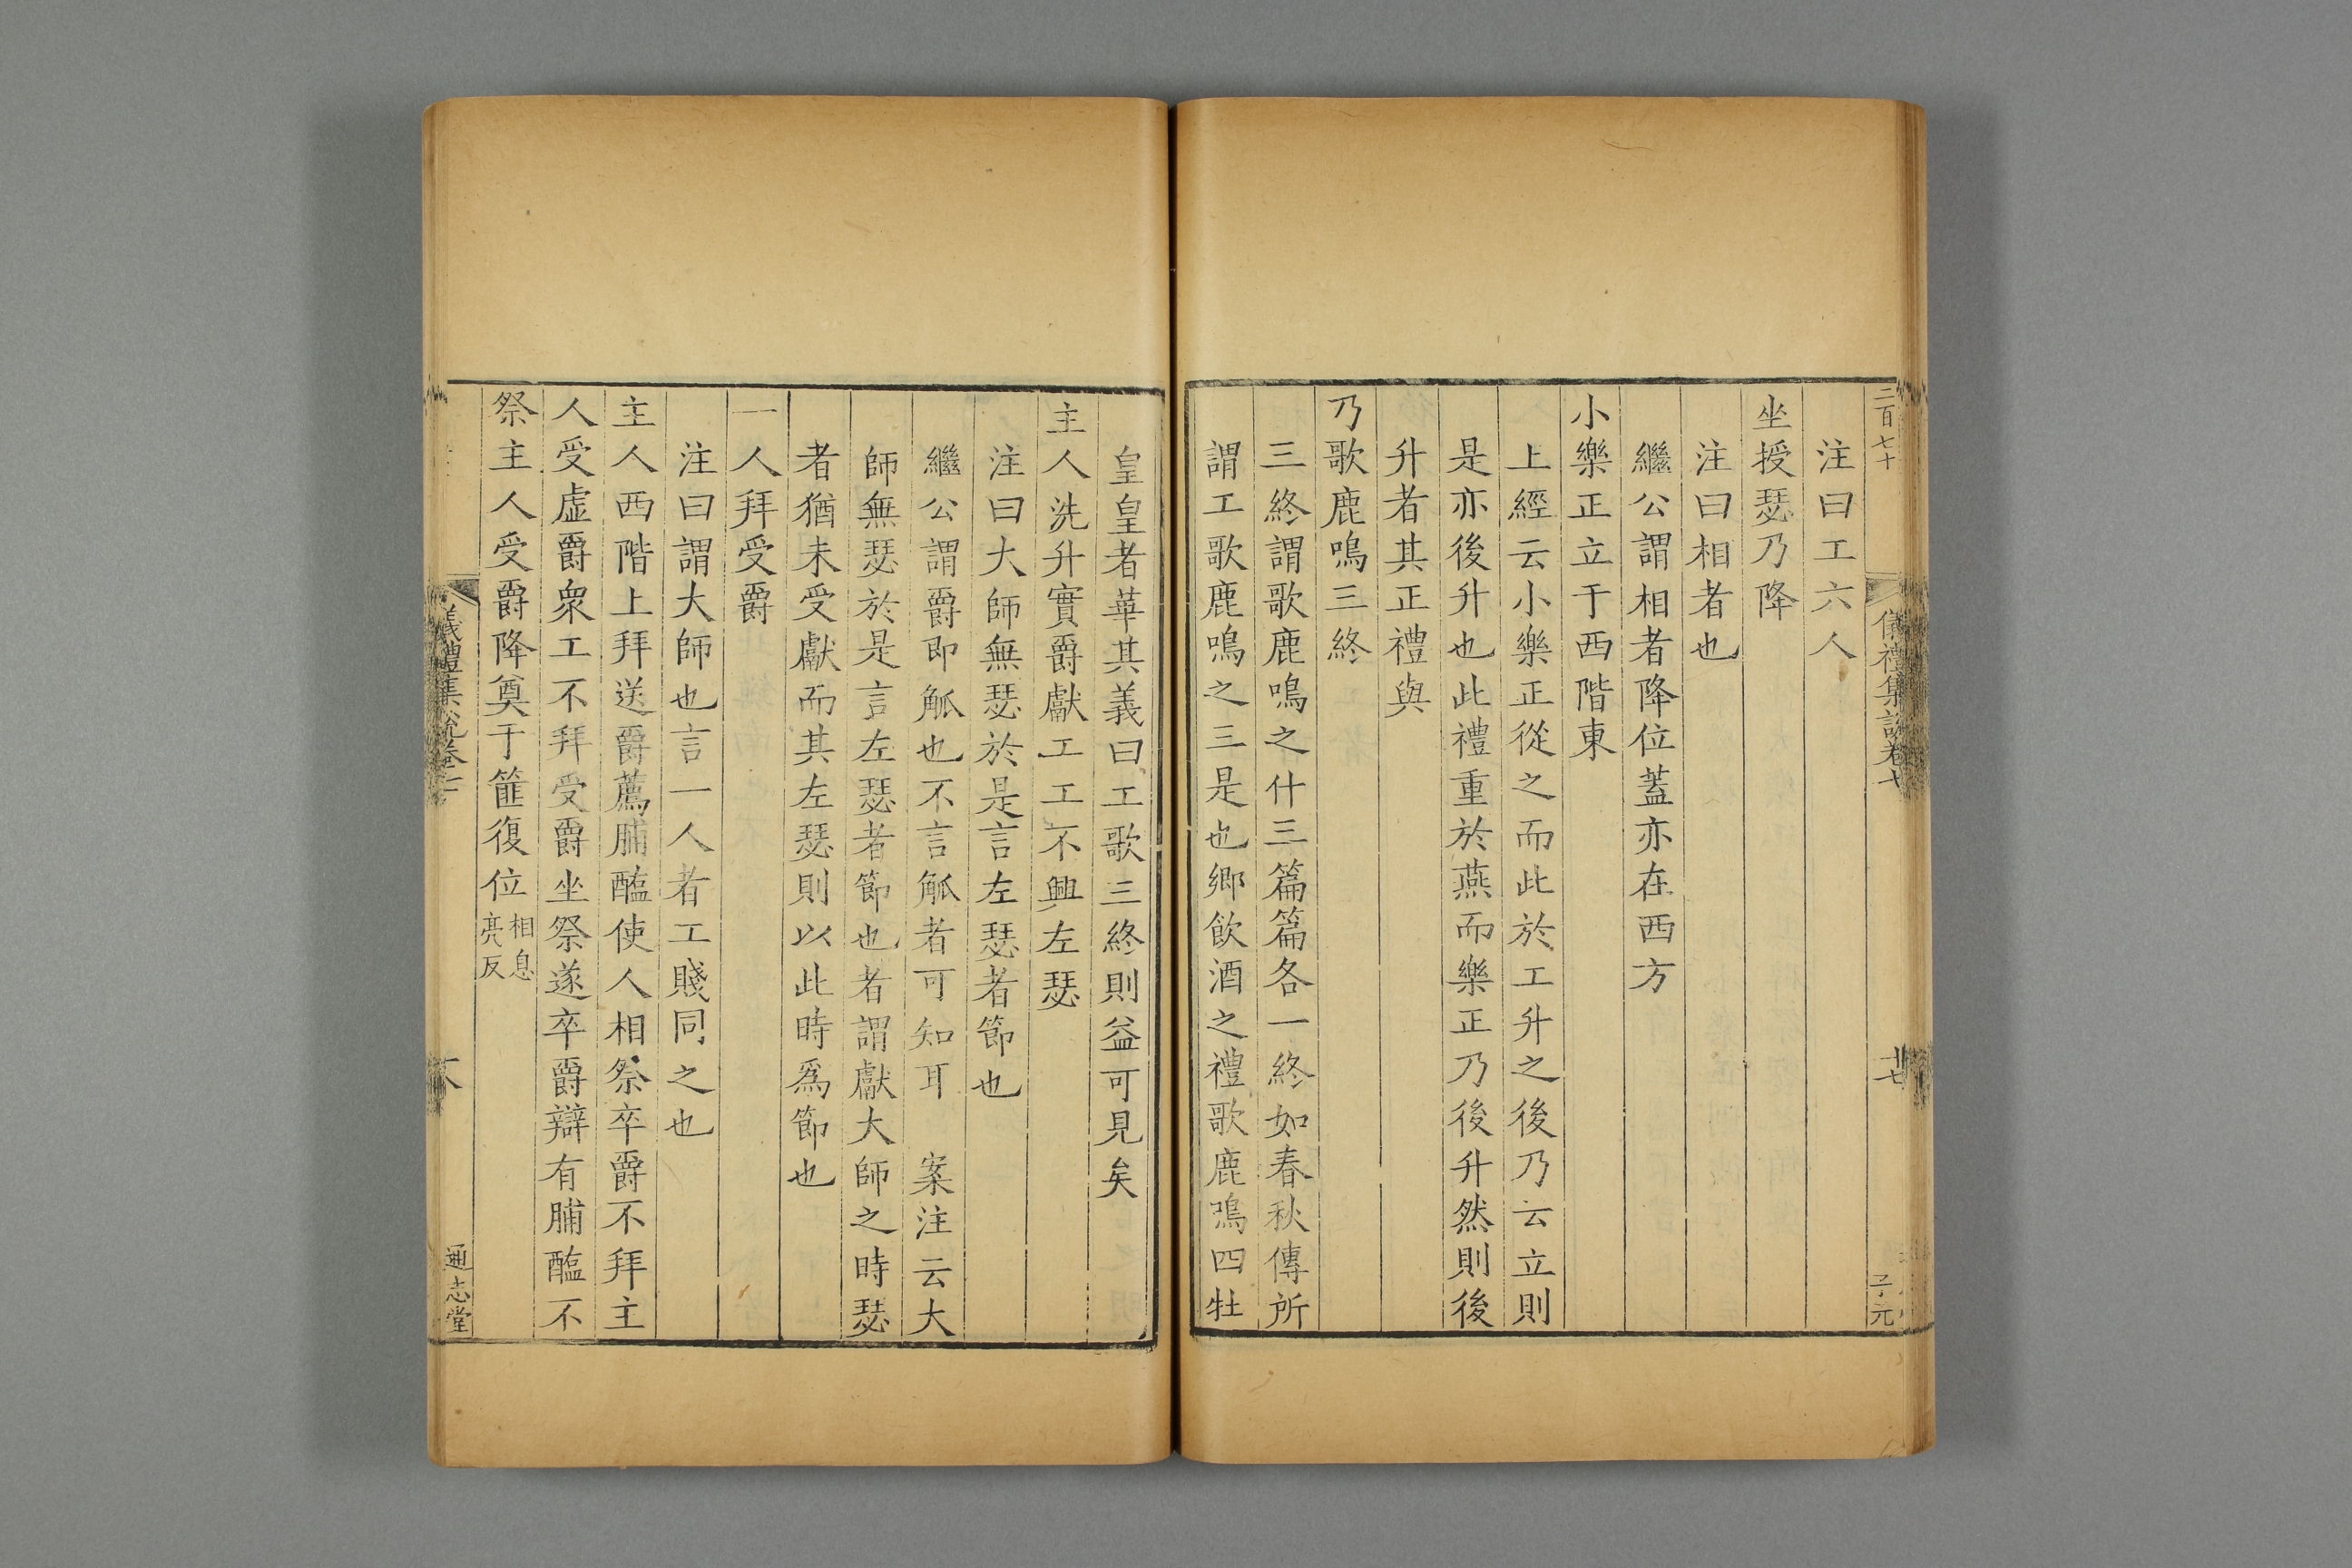 二百七十
儀禮集說卷七
廿七
子元
注曰工六人
坐授瑟乃降
注曰相者也
繼公謂相者降位蓋亦在西方
小樂正立于西階東
上經云小樂正從之而此於工升之後乃云立則
是亦後升也此禮重於燕而樂正乃後升然則後
升者其正禮與
乃歌鹿鳴三終
三終謂歌鹿鳴之什三篇篇各一終如春秋傳所
謂工歌鹿鳴之三是也鄉飲酒之禮歌鹿鳴四牡
皇皇者華其義曰工歌三終則益可見矣
主人洗升實爵獻工工不興左瑟
注曰大師無瑟於是言左瑟者節也
繼公謂爵即觚也不言觚者可知耳　案注云大
師無瑟於是言左瑟者節也者謂獻大師之時瑟
者猶未受獻而其左瑟則以此時爲節也
一人拜受爵
注曰謂大師也言一人者工賤同之也
主人西階上拜送爵薦脯醢使人相祭卒爵不拜主
人受虛爵衆工不拜受爵坐祭遂卒爵辯有脯醢不
祭主人受爵降奠于篚復位相息亮反
儀禮集說卷
通志堂